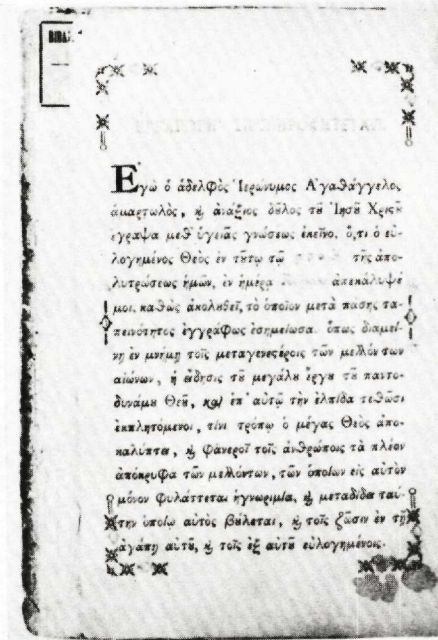 ΒΙΒΛ
Ἐγὼ ὁ ἀδελφὸς Ἱερώνυμος Ἀγαθάγγελος
ἁμαρτωλὸς, ϗ ἀνάξιος δοῦλος τοῦ Ἰησοῦ Χριστοῦ
ἔγραψα μεθ᾽ ὑγειᾶς γνώσεως ἐκεῖνο. ὅ,τι ὁ εὐ-
λογημένος Θεὸς ἐν τούτῳ τῷ τῆς ἀπο-
λυτρώσεως ἡμῶν, ἐν ἡμέρᾳ ἀπεκάλυψέ
μοι. καθὼς ἀκολουθεῖ, τὸ ὁποῖον μετὰ πάσης τα-
πεινότητος ἐγγράφως ἐσημείωσα. ὅπως διαμεί-
νῃ ἐν μνήμῃ τοῖς μεταγενεστέροις τῶν μελλόντων
αἰώνων, ἡ εἴδησις τοῦ μεγάλου ἔργου τοῦ παντο-
δυνάμου Θεοῦ, καὶ ἐπ᾽ αὐτῷ τὴν ἐλπίδα τεθῶσι
ἐκπλητόμενοι, τίνι τρόπῳ ὁ μέγας Θεὸς ἀπο-
καλύπτει, ϗ φανεροῖ τοῖς ἀνθρώποις τὰ πλέον
ἀπόκρυφα τῶν μελλόντων, τῶν ὁποίων εἰς αὐτὸν
μόνον φυλάττεται ἡ γνωριμία, ϗ μεταδίδει ταύ-
την ὁποίῳ αὐτὸς βούλεται, ϗ τοῖς ζῶσιν ἐν τῇ
ἀγάπῃ αὐτοῦ, ϗ τοῖς ἐξ αὐτοῦ εὐλογημένοις.